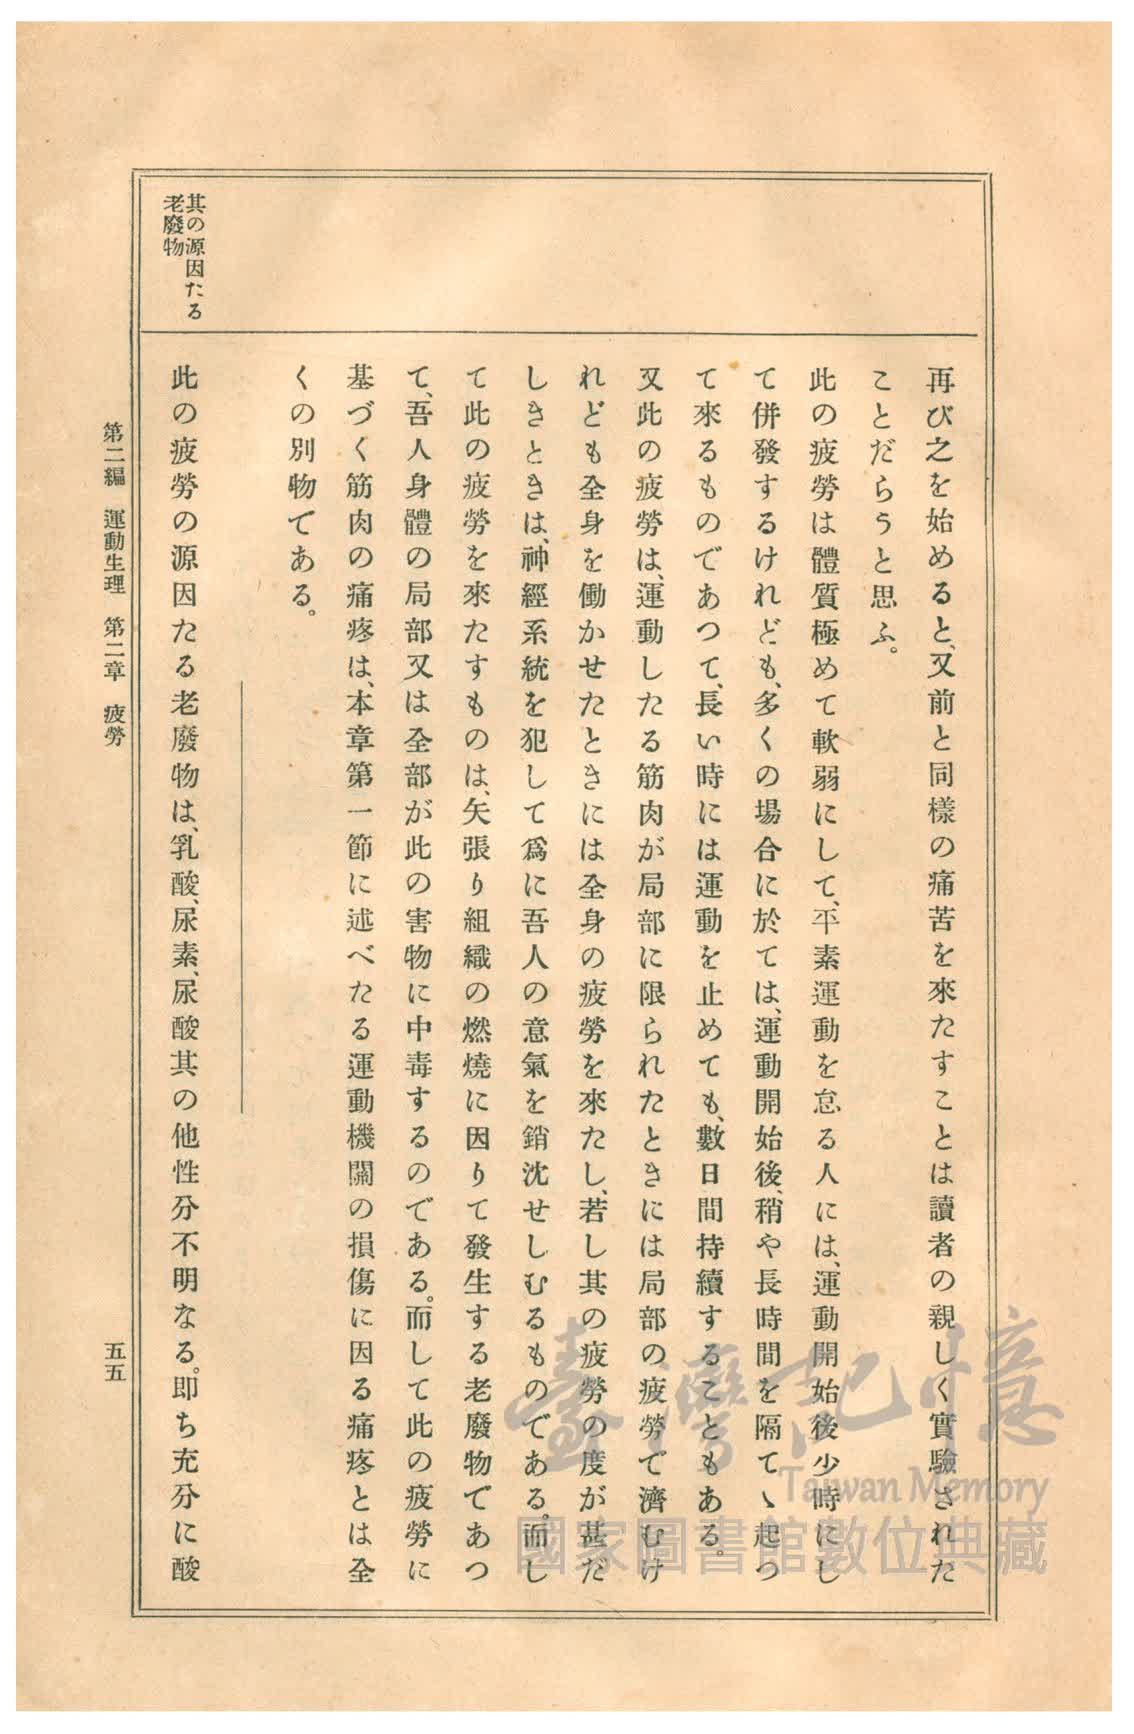 再び之を始めると、又前と同樣の痛苦を來たすことは讀者の親しく實驗された
ことだらうと思ふ。
此の疲勞は體質極めて軟弱にして、平素運動を怠る人には、運動開始後少時にし
て併發するけれども、多くの場合に於ては、運動開始後、稍や長時間を隔てゝ起つ
て來るものであつて、長い時には運動を止めても、數日間持續することもある。
又此の疲勞は、運動したる筋肉が局部に限られたときには局部の疲勞で濟むけ
れども全身を働かせたときには全身の疲勞を來たし、若し其の疲勞の度が甚だ
しきときは、神經系統を犯して爲に吾人の意氣を銷沈せしむるものである。而し
て此の疲勞を來たすものは、矢張り組織の燃燒に因りて發生する老廢物であつ
て、吾人身體の局部又は全部が此の害物に中毒するのである。而して此の疲勞に
基づく筋肉の痛疼は、本章第一節に述べたる運動機關の損傷に因る痛疼とは全
くの別物である。
其の源因たる
老廢物
此の疲勞の源因たる老廢物は、乳酸、尿素、尿酸其の他性分不明なる。即ち充分に酸
第二編 運動生理 第二章 疲勞
五五
臺灣記憶
Taiwan Memory
國家圖書館數位典藏